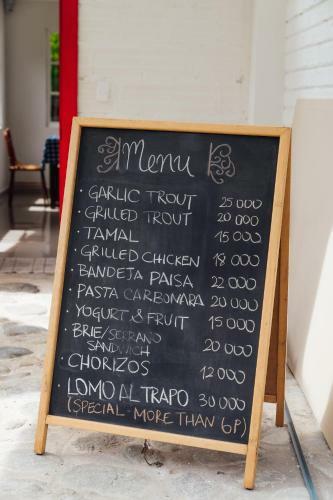 Menu
· GARLIC TROUT 25 000
· GRILLED TROUT 20 000
· TAMAL 15 000
· GRILLED CHICKEN 18 000
· BANDEJA PAISA 22 000
· PASTA CARBONARA 20 000
· YOGURT & FRUIT 15 000
· BRIE/SERRANO
SANDWICH 20 000
· CHORIZOS 12 000
· LOMO AL TRAPO 30 000
(SPECIAL - MORE THAN 6P)